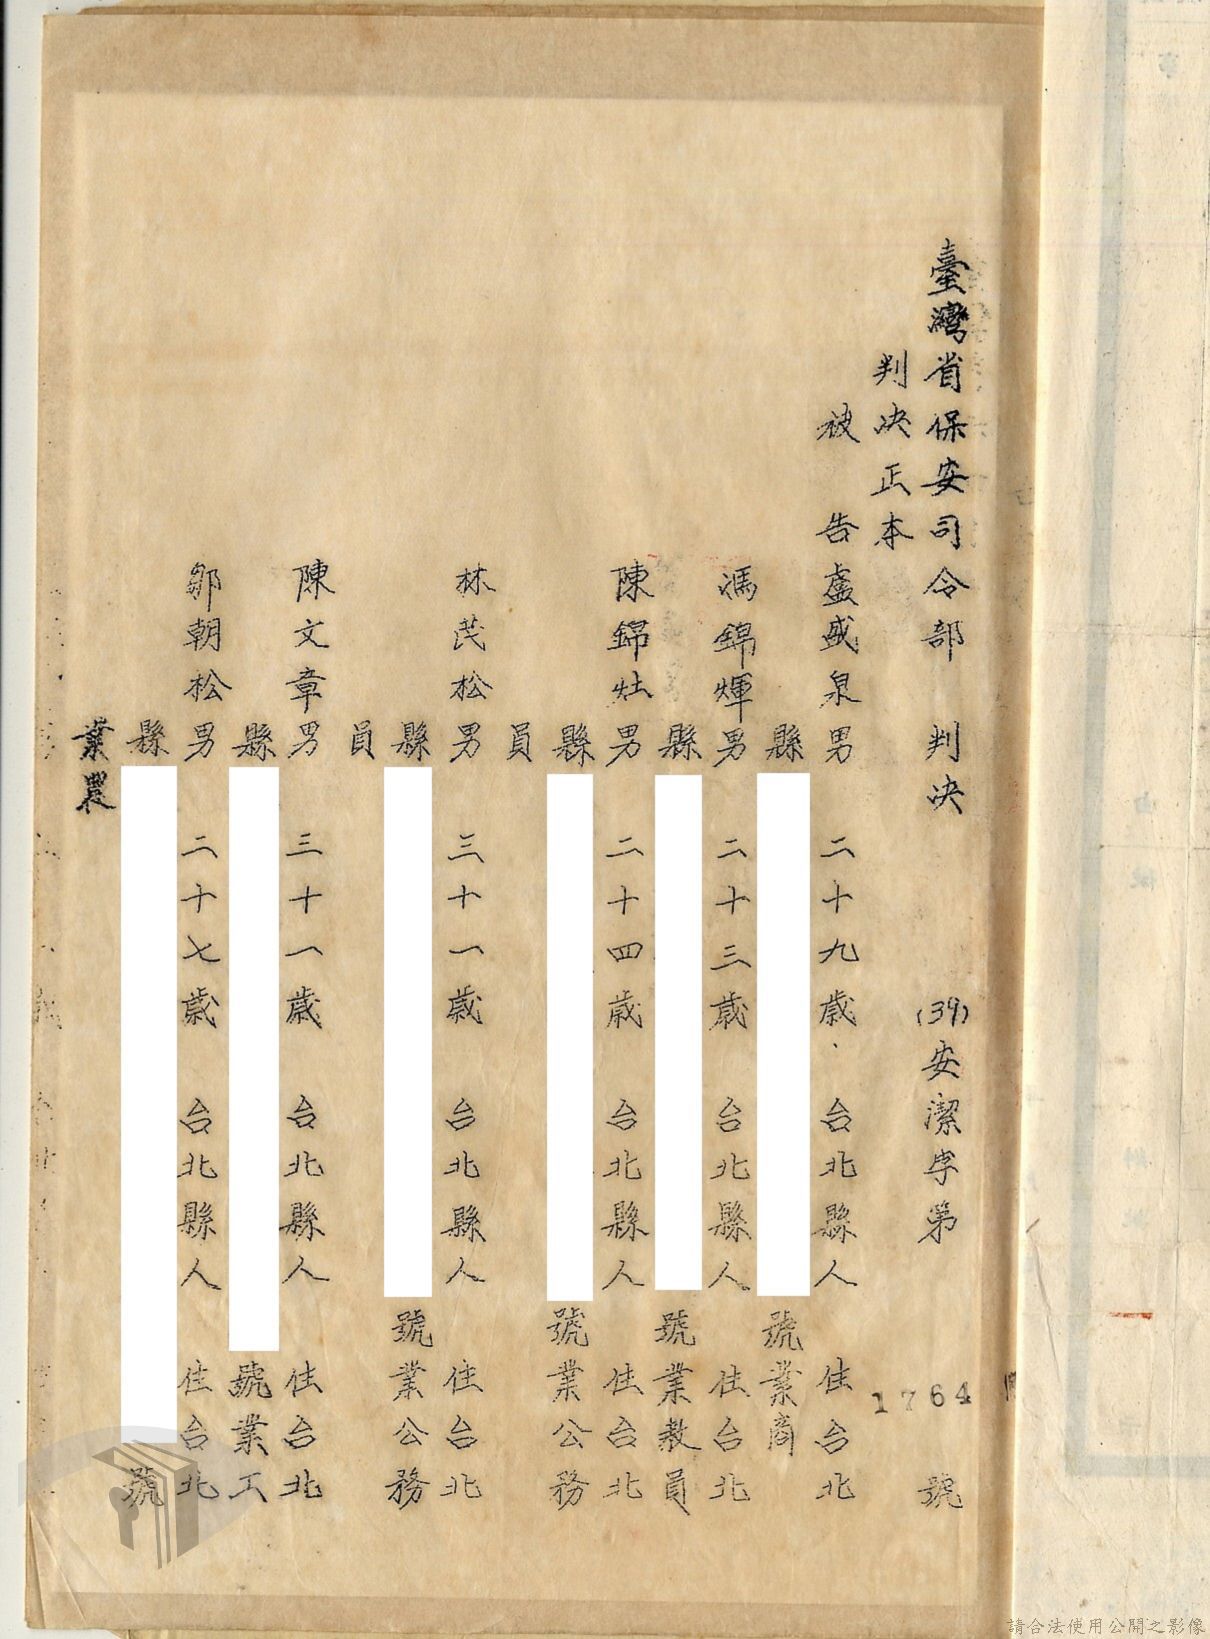 臺灣省保安司令部 判决 (39)安潔字第1764號
判决正本
被告盧盛泉男 二十九歲 台北縣人 住台北
縣 號業商
馮錦煇男 二十三歲 台北縣人 住台北
縣 號業教員
陳錦灶男 二十四歲 台北縣人 住台北
縣 號業公務
員
林茂松男 三十一歲 台北縣人 住台北
縣 號業公務
員
陳文章男 三十一歲 台北縣人 住台北
縣 號業工
鄒朝松男 二十七歲 台北縣人 住台北
縣 號
業農
請合法使用公開之影像